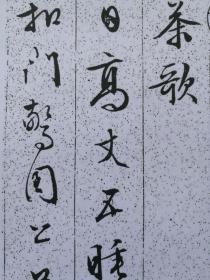 茶歌
日高丈五睡
扣门惊周公